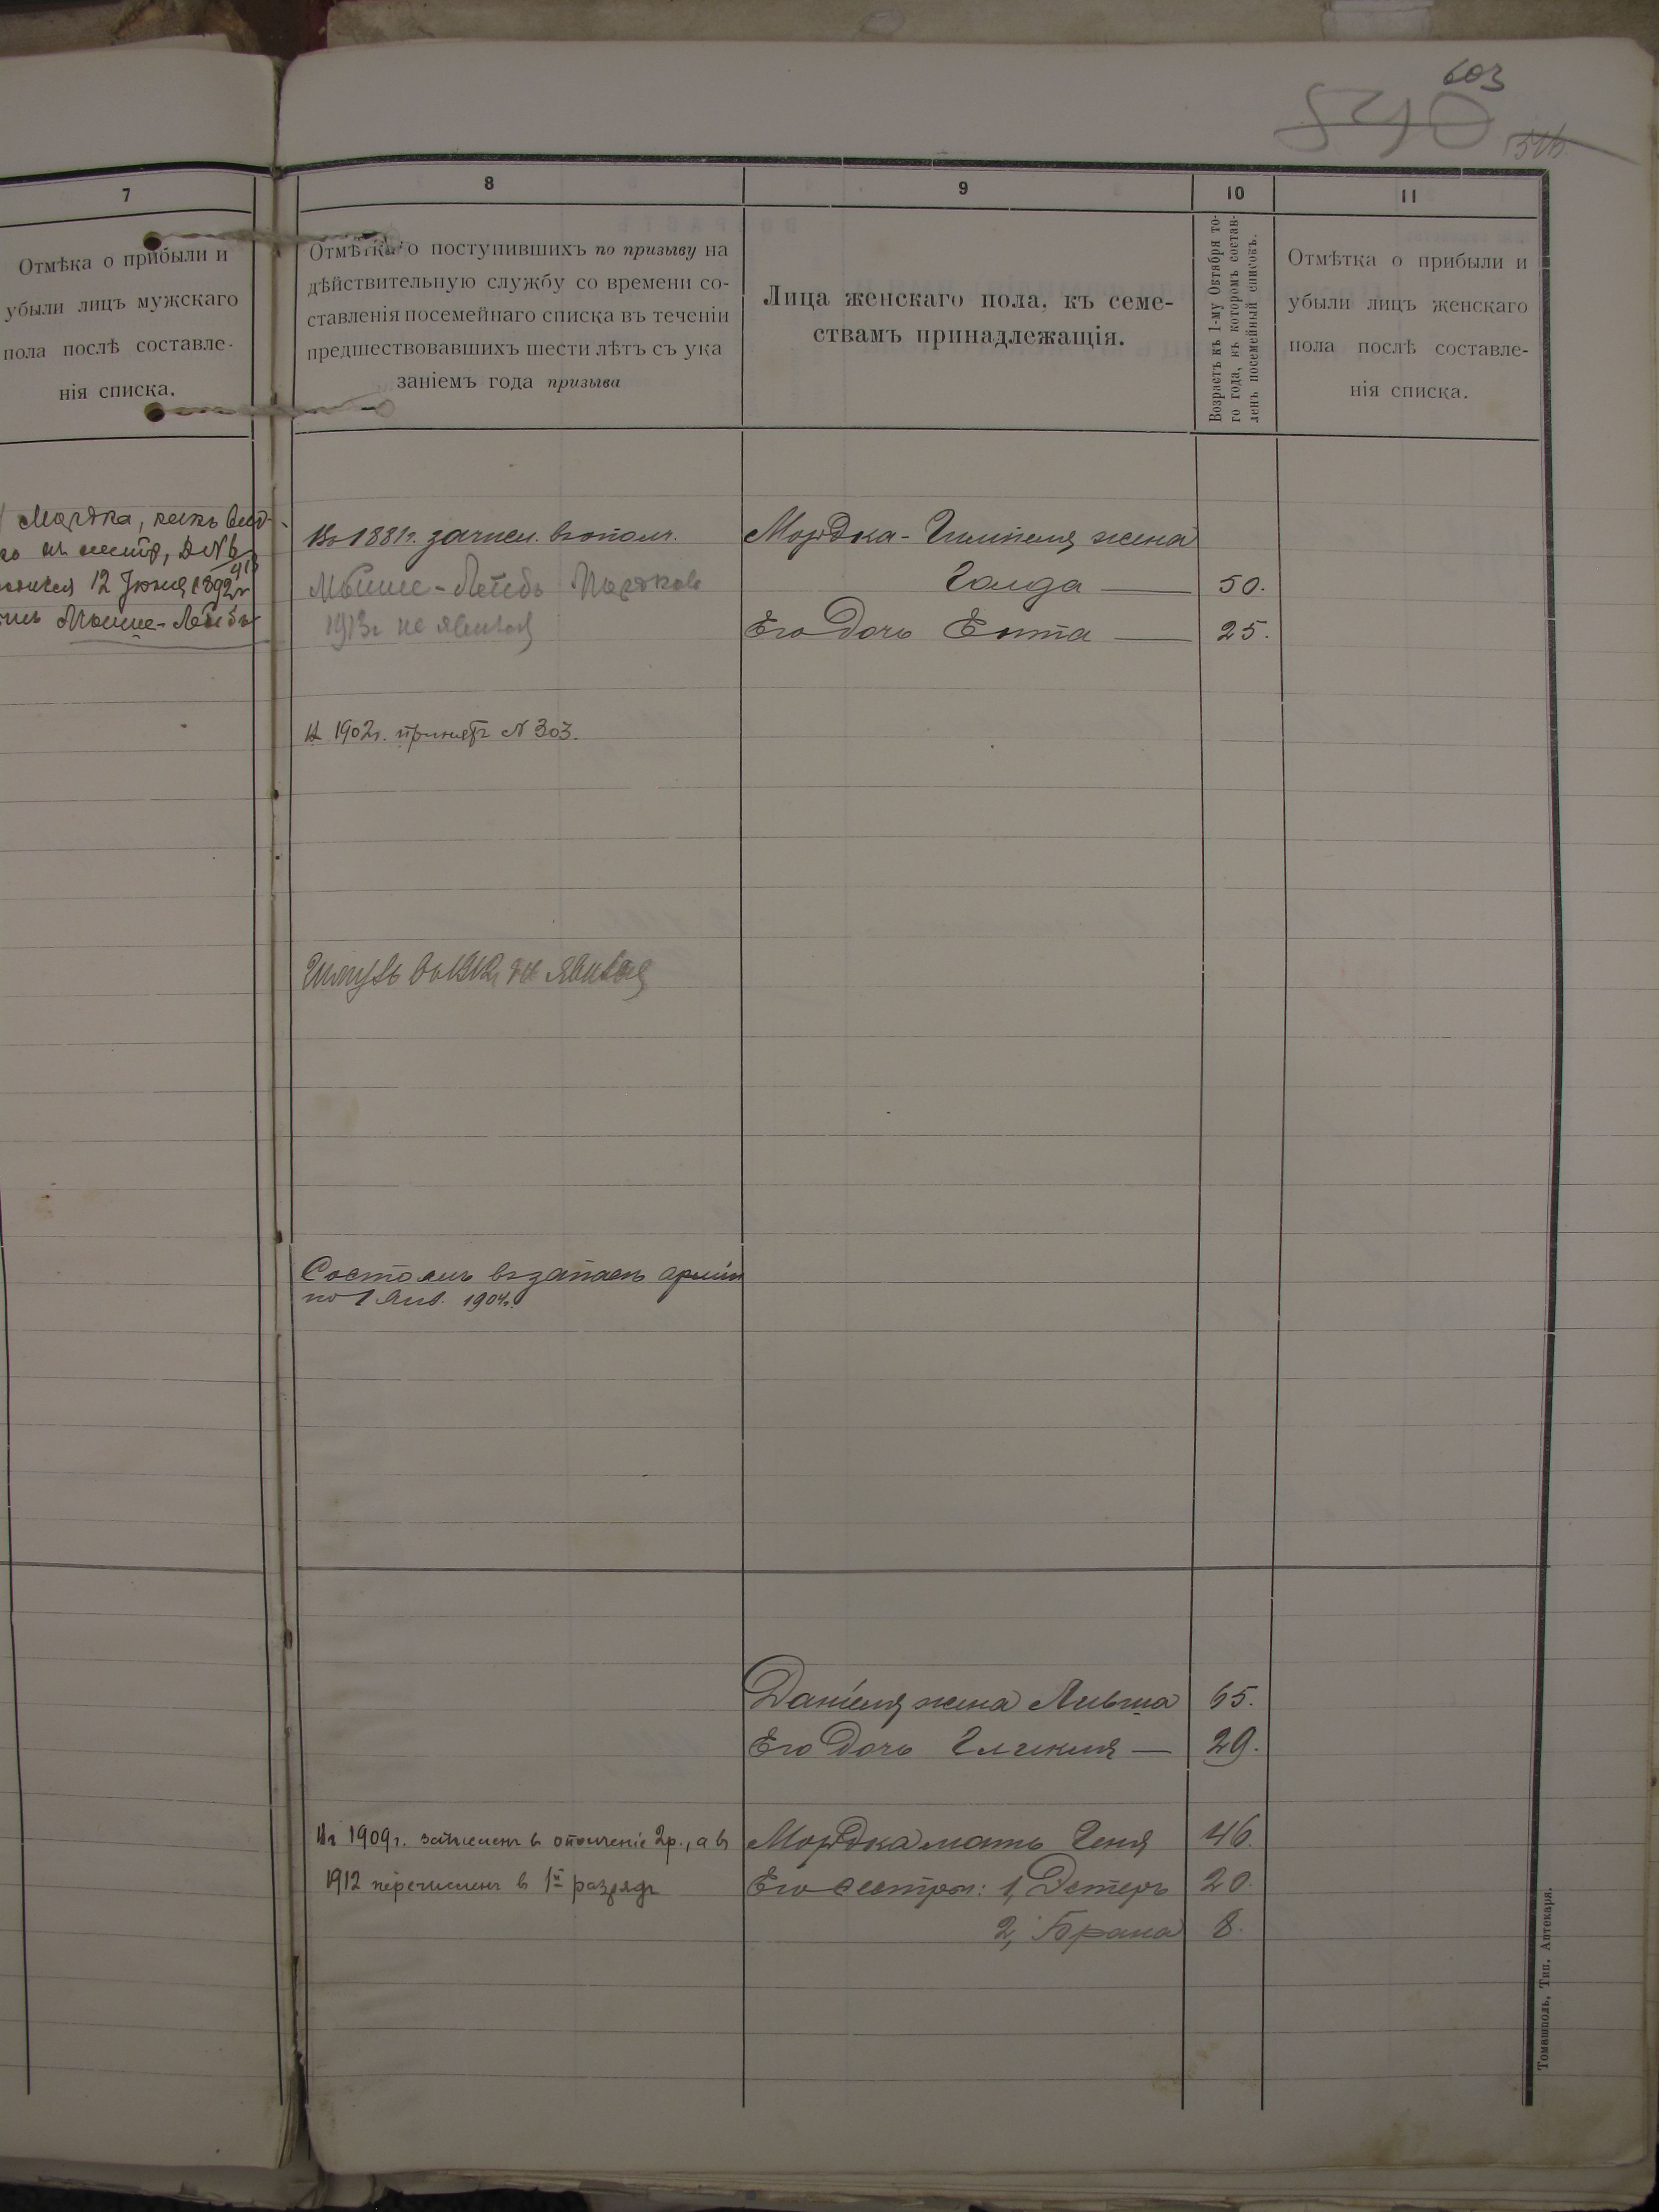 603
540
7
Отмѣка о прибыли и
убыли лицъ мужскаго
пола послѣ составле-
нія списка.
8
Отмѣтка о поступившихъ по призыву на
дѣйствительную службу со времени со-
ставленія посемейнаго списка въ теченіи
предшествовавшихъ шести лѣтъ съ ука
заніемъ года призыва
9
Лица женскаго пола, къ семе-
ствамъ принадлежащія.
10
Возрастъ къ 1-му Октября то-
го года, въ которомъ состав-
ленъ посемейный списокъ.
11
Отмѣтка о прибыли и
убыли лицъ женскаго
пола послѣ составле-
нія списка.
Мордка, какъ
12 Іюня 1892 г
Мошше-Лейбъ
Въ 1881г. зачисл. въ ополч.
Мошше-Лейбъ Мордков
1913г не явился
Мордка- жена
Голда — 50.
Его дочь Ента — 25.
В 1902г. принятъ № 303.
въ 1912г не явился
Состоялъ въ запасѣ арміи
по 1 Янв. 1904г.
Даніеля жена Ливша 65.
Его дочь — 29.
В 1909г. зачисленъ в ополченіе 2р., а в
1912 перечисленъ в 1й разрядъ
Мордка мать Геня 46.
Его сестры: 1, Эстеръ 20.
2, Брана 8.
Томашполь, Тип. Аптекаря.